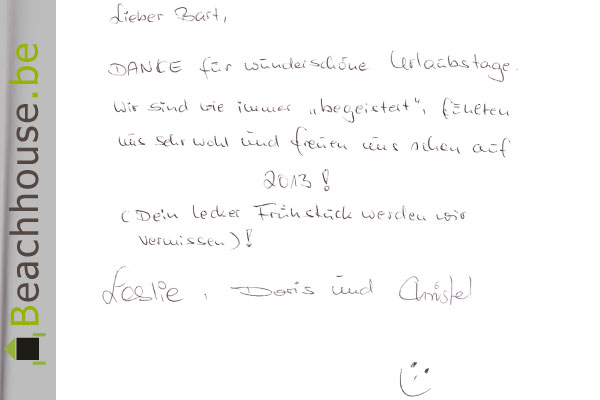 Beachhouse.be
Lieber Bart,
DANKE für wunderschöne Urlaubstage.
Wir sind wie immer „begeistert", fühlten
uns sehr wohl und freuen uns schon auf
2013!
(Dein lecker Frühstück werden wir
vermissen)!
Leslie, Doris und Christel